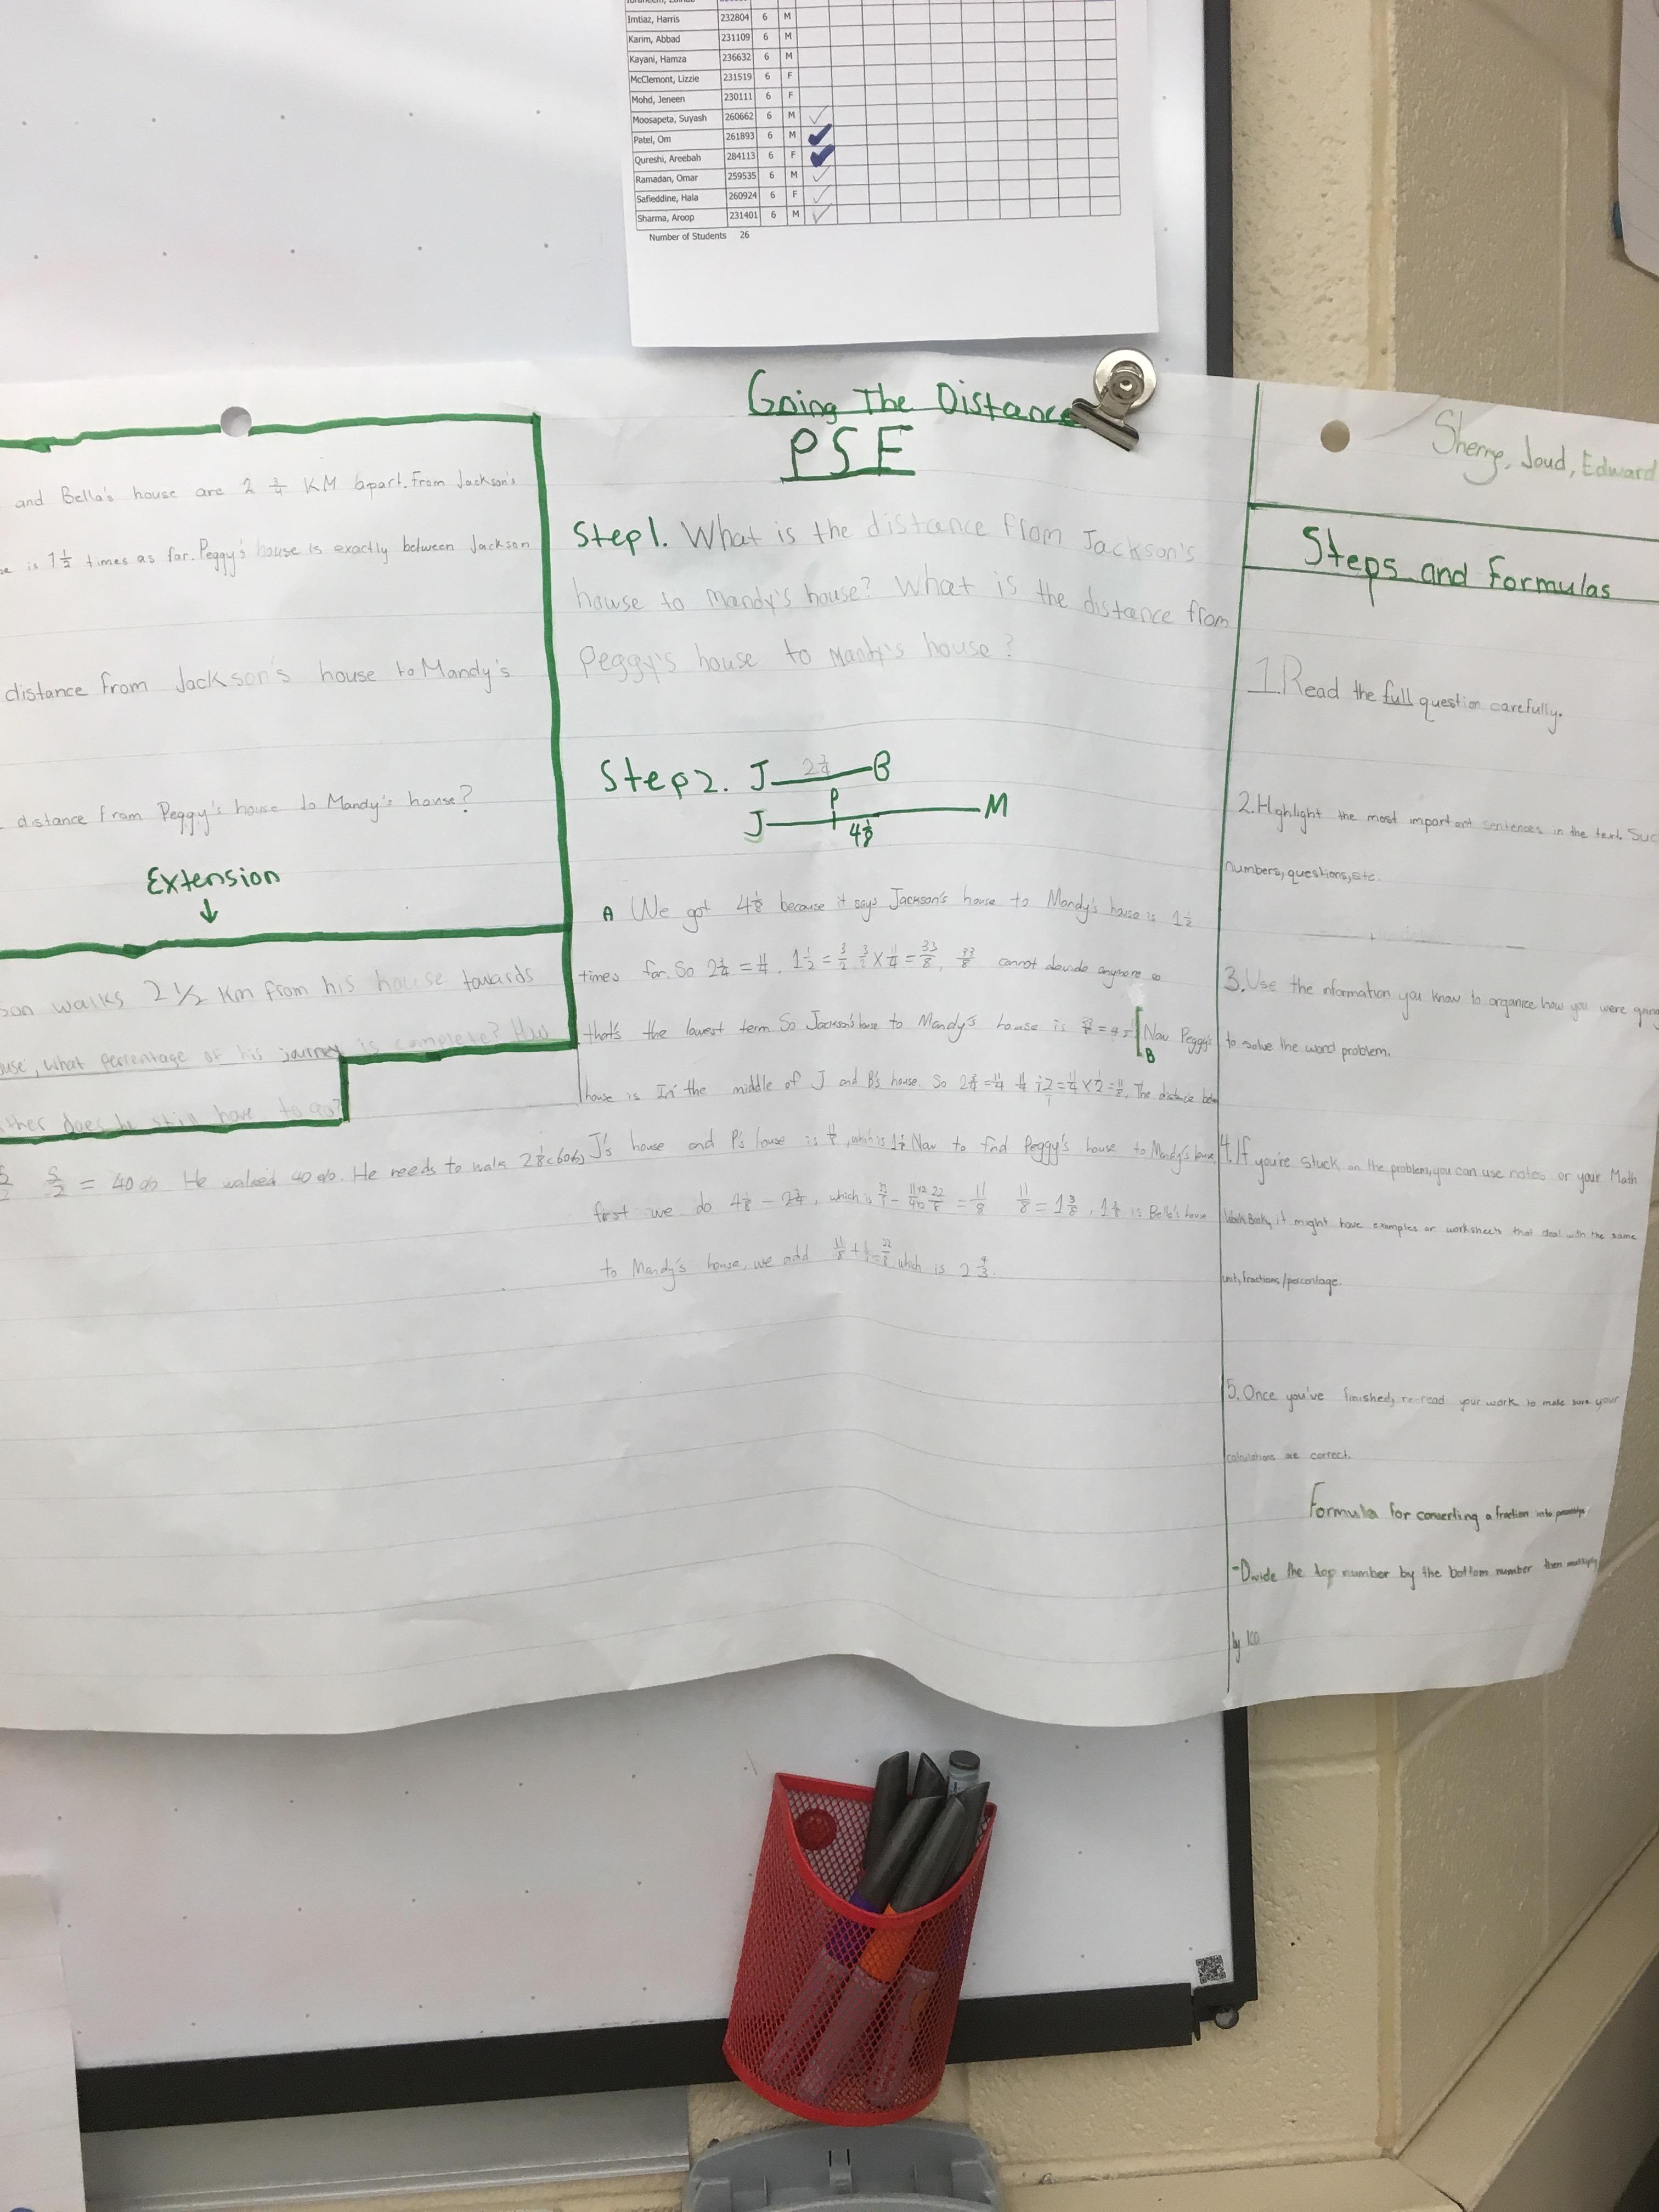 Imtiaz, Harris 232804 6 M
Karim, Abbad 231109 6 M
Kayani, Hamza 236632 6 M
McClemont, Lizzie 231519 6 F
Mohd, Jeneen 230111 6 F
Moosapeta, Suyash 260662 6 M
Patel, Om 261893 6 M
Qureshi, Areebah 284113 6 F
Ramadan, Omar 259535 6 M
Safieddine, Hala 260924 6 F
Sharma, Aroop 231401 6 M
Number of Students 26
and Bella's house are 2 3/4 KM apart. From Jackson's
is 1 1/2 times as far. Peggy's house is exactly between Jackson
distance from Jackson's house to Mandy's
distance from Peggy's house to Mandy's house?
Extension
walks 2 1/2 Km from his house towards
, what percentage of his journey is complete? How
does he still have to go?
5/2 = 40%. He walked 40%. He needs to walk
Going The Distance
PSE
Step 1. What is the distance from Jackson's
howse to Mandy's house? What is the distance from
Peggy's house to Mandy's house?
Step 2. J 2 3/4 B
J P 4 1/8 M
A We got 4 1/8 because it says Jackson's house to Mandy's house is 1 1/2
times far. So 2 3/4 = 11/4, 1 1/2 = 3/2 3/2 X 11/4 = 33/8, 33/8 cannot anymore so
that's the lowest term. So Jackson's house to Mandy's house is B Now Peggy's
house is In the middle of J and B's house. So 2 3/4 = 11/4 The distance
J's house and P's house is Now to find Peggy's house to Mandy's house
first we do 4 1/8 - 2 3/4, which is = 11/8 11/8 = 1 3/8, 1 3/8 is Bella's house
to Mandy's house, we add which is
Sherry, Joud, Edward
Steps and Formulas
1. Read the full question carefully.
2. Highlight the most important sentences in the text. Suc
numbers, questions, etc.
3. Use the information you know to organize how you were going
to solve the word problem.
4. If you're stuck on the problem, you can use notes or your Math
Work Book, it might have examples or worksheets that deal with the same
unit, fractions/percentage.
5. Once you've finished, re-read your work to make sure your
calculations are correct.
Formula for converting a fraction into
- Divide the top number by the bottom number then multiply
by 100